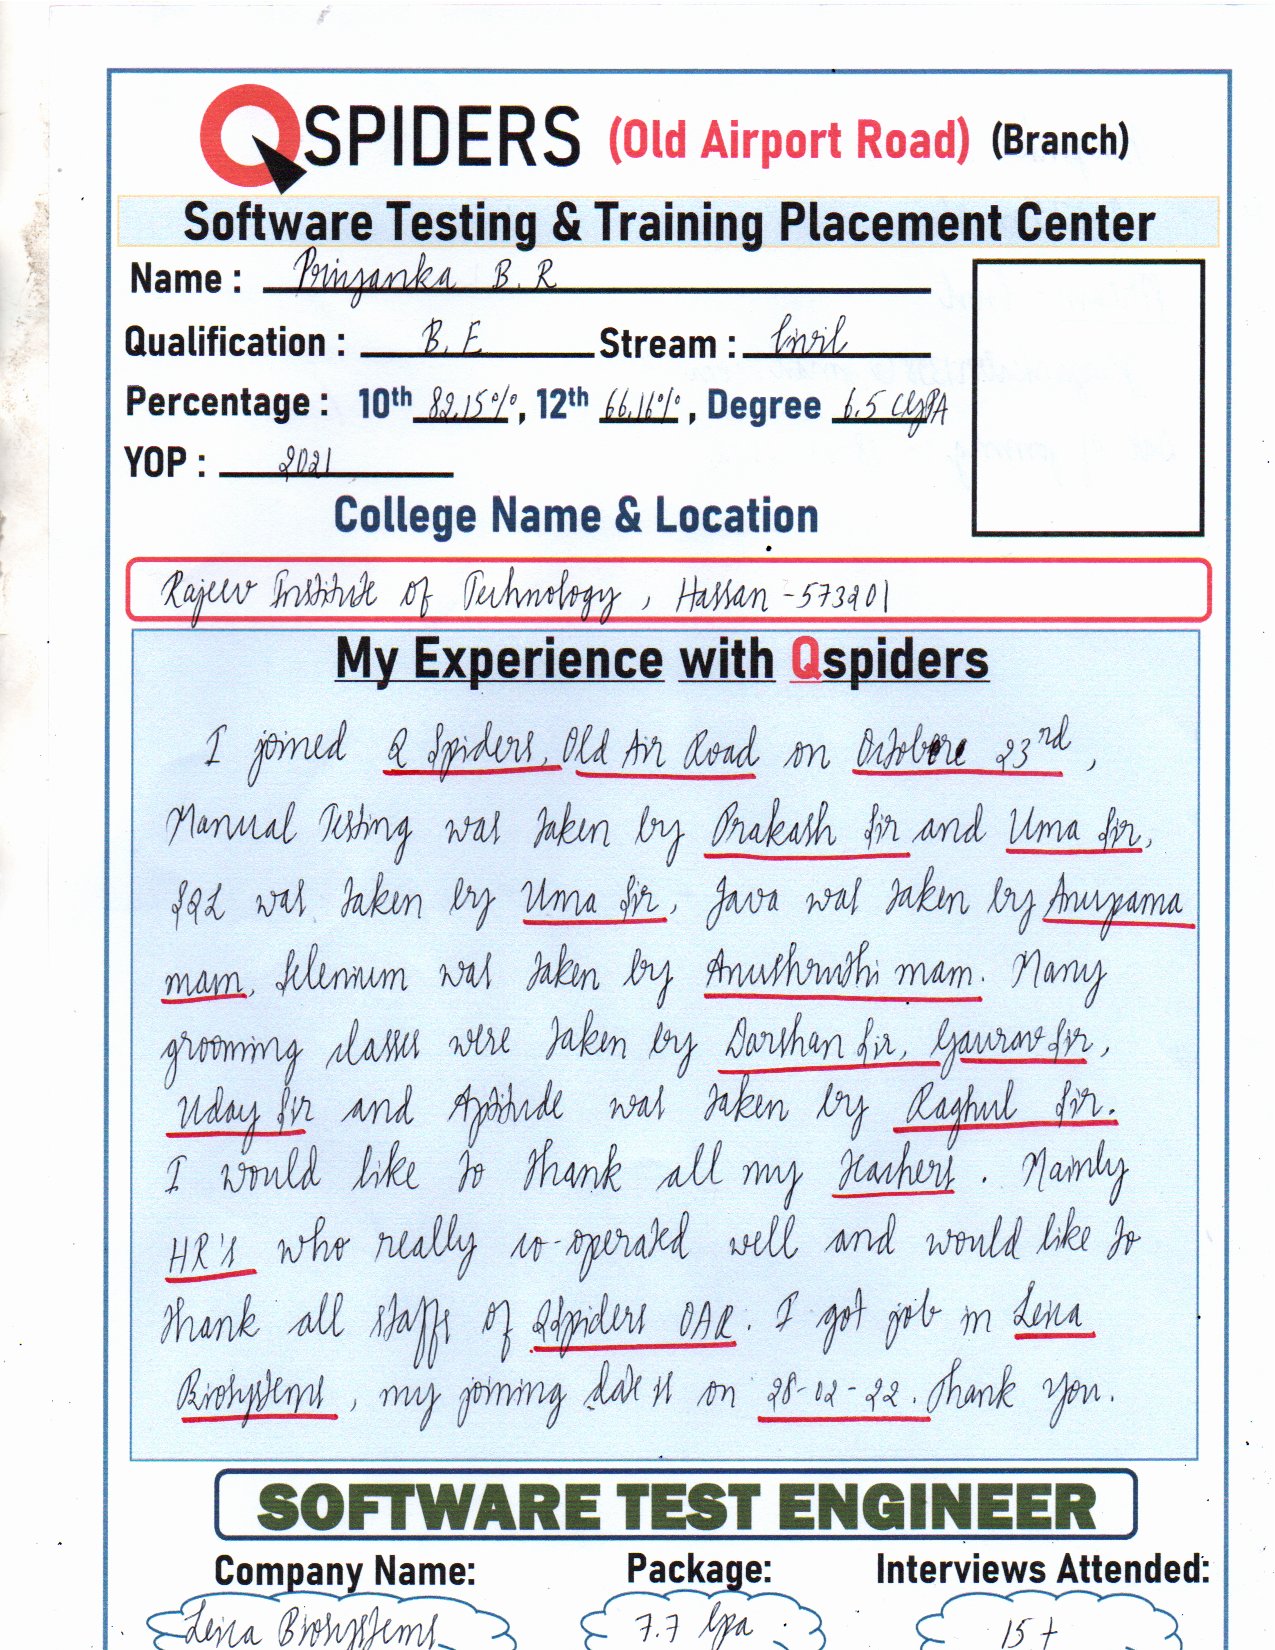 QSPIDERS (Old Airport Road) (Branch)
Software Testing & Training Placement Center
Name : Priyanka B.R
Qualification : B.E Stream : Civil
Percentage : 10th 82.15%, 12th 66.16%, Degree 6.5 CGPA
YOP : 2021
College Name & Location
Rajeev Institute of Technology, Hassan - 573201
My Experience with Qspiders
I joined Q Spiders, Old Air Road on Octobore 23rd,
Manual Testing was taken by Prakash Sir and Uma Sir,
SQL was taken by Uma Sir, Java was taken by Anupama
mam, Selenium was taken by Anushruthi mam. Many
grooming classes were taken by Darshan Sir, Gaurav Sir,
Uday Sir and Aptitude was taken by Raghul Sir.
I would like to thank all my teachers. Mainly
HR's who really co-operated well and would like to
thank all staffs of QSpiders OAR. I got job in Leica
Biosystems, my joining date is on 28-02-22. Thank you.
SOFTWARE TEST ENGINEER
Company Name: Package: Interviews Attended:
Leica Biosystems 7.7 lpa. 15+